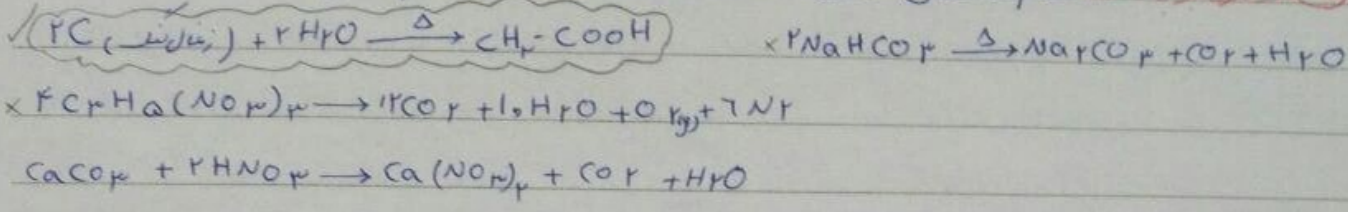 ✓ ۲C (زغال سنگ) + ۲H۲O —Δ→ CH۳-COOH × ۲NaHCO۳ —Δ→ Na۲CO۳ + CO۲ + H۲O
× ۴C۳H۵(NO۳)۳ → ۱۲CO۲ + ۱۰H۲O + O۲(g) + ۶N۲
CaCO۳ + ۲HNO۳ → Ca(NO۳)۲ + CO۲ + H۲O